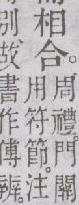 相合。周禮門關
用符節。注
別故書作傅辨。